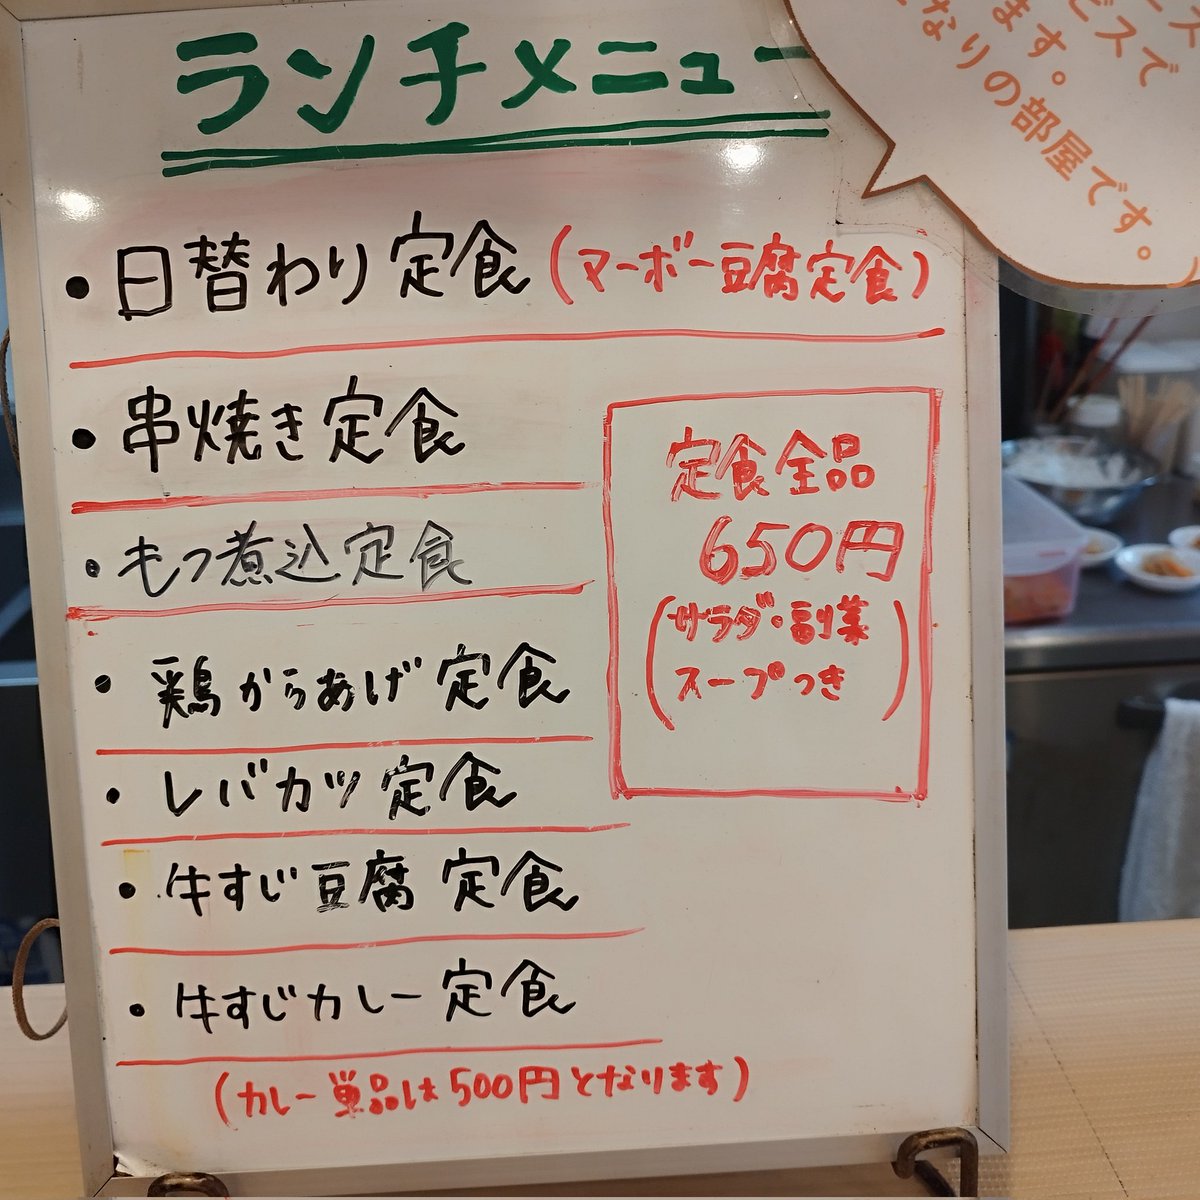 ランチメニュー
・日替わり定食(マーボー豆腐定食)
・串焼き定食
・もつ煮込定食
・鶏からあげ定食
・レバカツ定食
・牛すじ豆腐定食
・牛すじカレー定食
(カレー単品は500円となります)
定食全品
650円
(サラダ・副菜
スープつき)
ビスで
ます。
なりの部屋です。